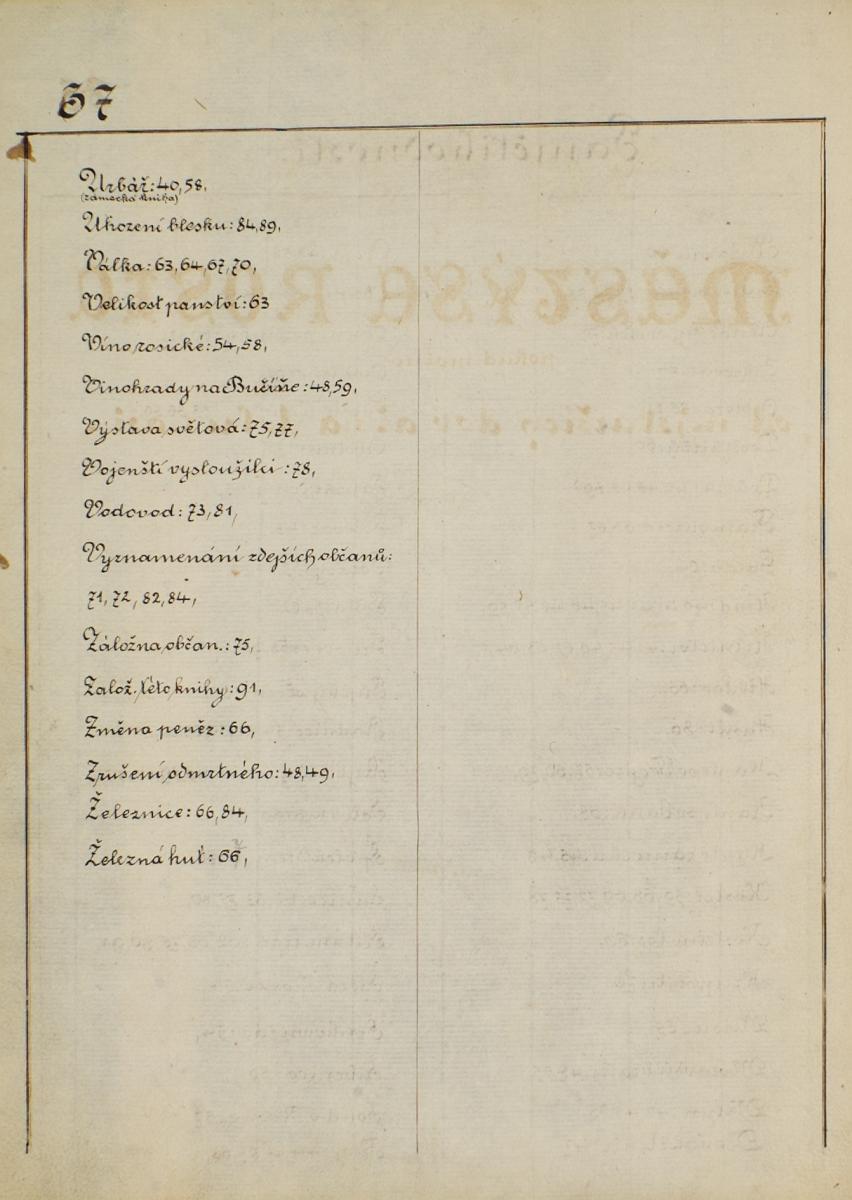 67
Urbář: 40, 58,
(zámecká kniha)
Uhození blesku: 84, 89,
Válka: 63, 64, 67, 70,
Velikost panství: 63
Víno rosické: 54, 58,
Vinohrady na Bučíně: 48, 59,
Výstava světová: 75, 77,
Vojenští vysloužilci: 78,
Vodovod: 73, 81,
Vyznamenání zdejších občanů:
71, 72, 82, 84,
Záložna občan.: 75,
Založ. této knihy: 91,
Změna peněz: 66,
Zrušení odmrtného: 48, 49,
Železnice: 66, 84,
Železná huť: 66,